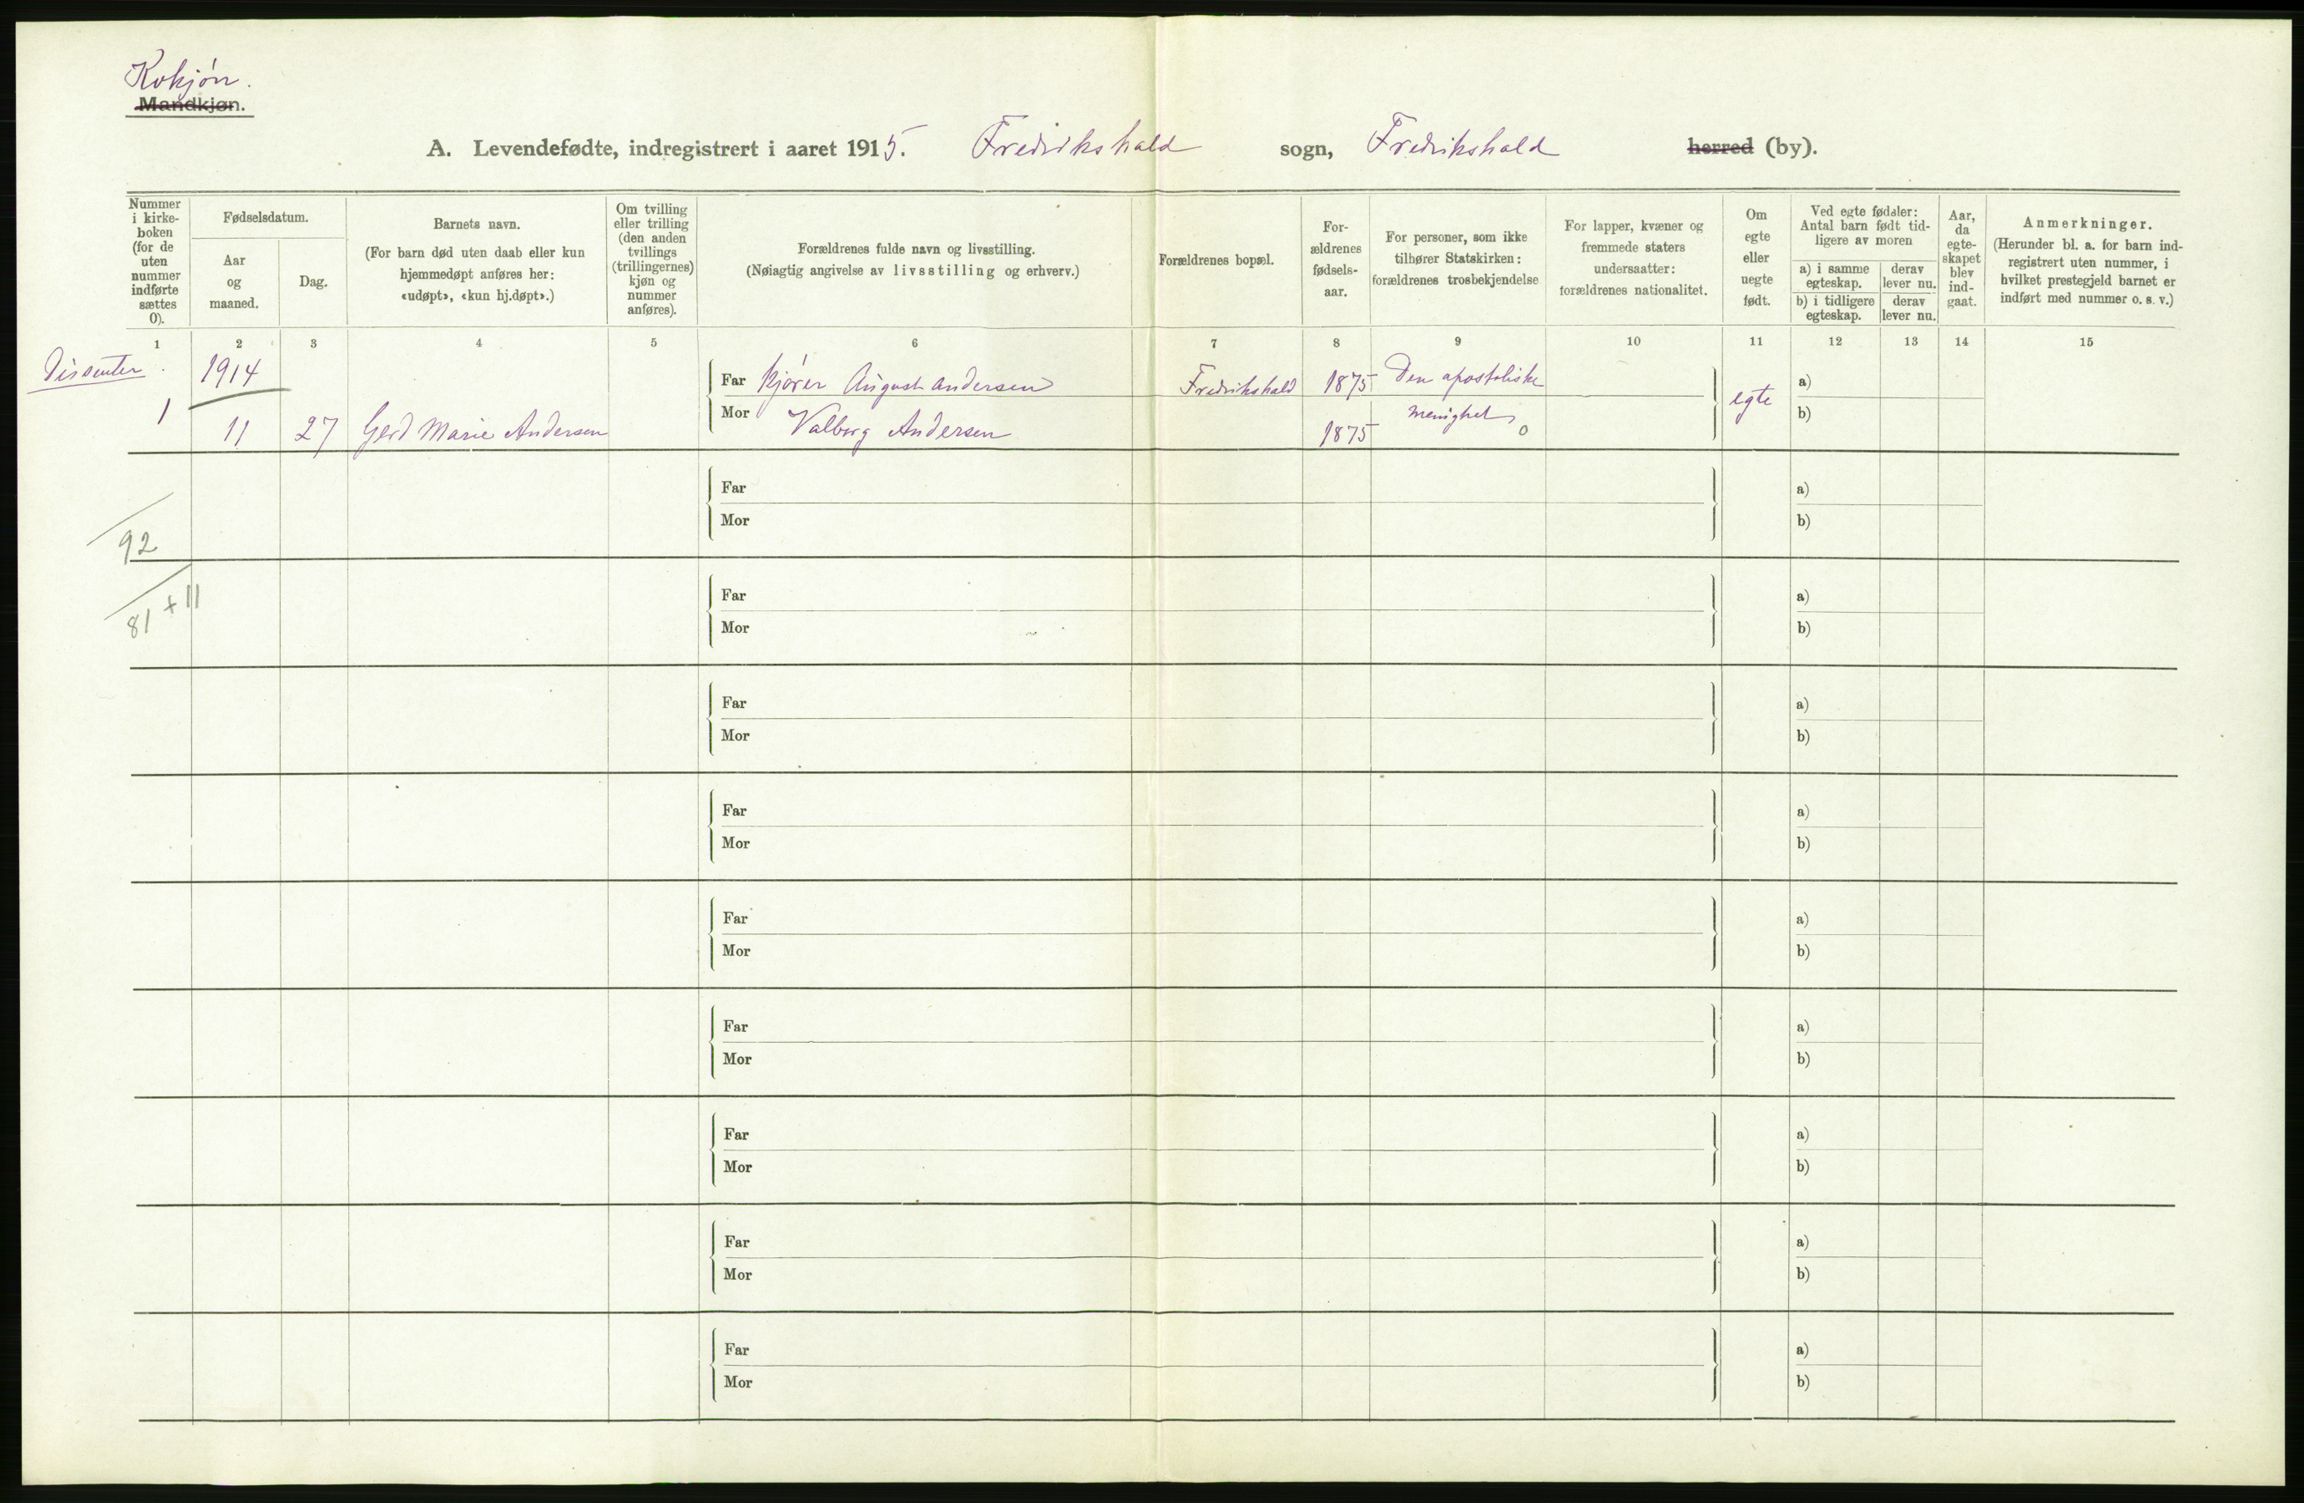 Kvkjøn.
Mandkjøn.
A. Levendefødte, indregistrert i aaret 1915. Fredrikshald sogn, Fredrikshald herred (by).
Nummer
i kirke-
boken
(for de
uten
nummer
indførte
sættes
0).
Fødselsdatum.
Aar
og
maaned.
Dag.
Barnets navn.
(For barn død uten daab eller kun
hjemmedøpt anføres her:
«udøpt», «kun hj.døpt».)
Om tvilling
eller trilling
(den anden
tvillings
(trillingernes)
kjøn og
nummer
anføres).
Forældrenes fulde navn og livsstilling.
(Nøiagtig angivelse av livsstilling og erhverv.)
Forældrenes bopæl.
For-
ældrenes
fødsels-
aar.
For personer, som ikke
tilhører Statskirken:
forældrenes trosbekjendelse
For lapper, kvæner og
fremmede staters
undersaatter:
forældrenes nationalitet.
Om
egte
eller
uegte
født.
Ved egte fødsler:
Antal barn født tid-
ligere av moren
a) i samme
egteskap.
derav
lever nu.
b) i tidligere
egteskap.
derav
lever nu.
Aar,
da
egte-
skapet
blev
ind-
gaat.
Anmerkninger.
(Herunder bl. a. for barn ind-
registrert uten nummer, i
hvilket prestegjeld barnet er
indført med nummer o. s. v.)
1 2 3 4 5 6 7 8 9 10 11 12 13 14 15
Dissenter. 1914 Far Kjører August Andersen Fredrikshald 1875 Den apostoliske egte a)
1 11 27 Gerd Marie Andersen Mor Valborg Andersen 1875 menighet, 0 b)
Far a)
Mor b)
92
Far a)
81 + 11 Mor b)
Far a)
Mor b)
Far a)
Mor b)
Far a)
Mor b)
Far a)
Mor b)
Far a)
Mor b)
Far a)
Mor b)
Far a)
Mor b)